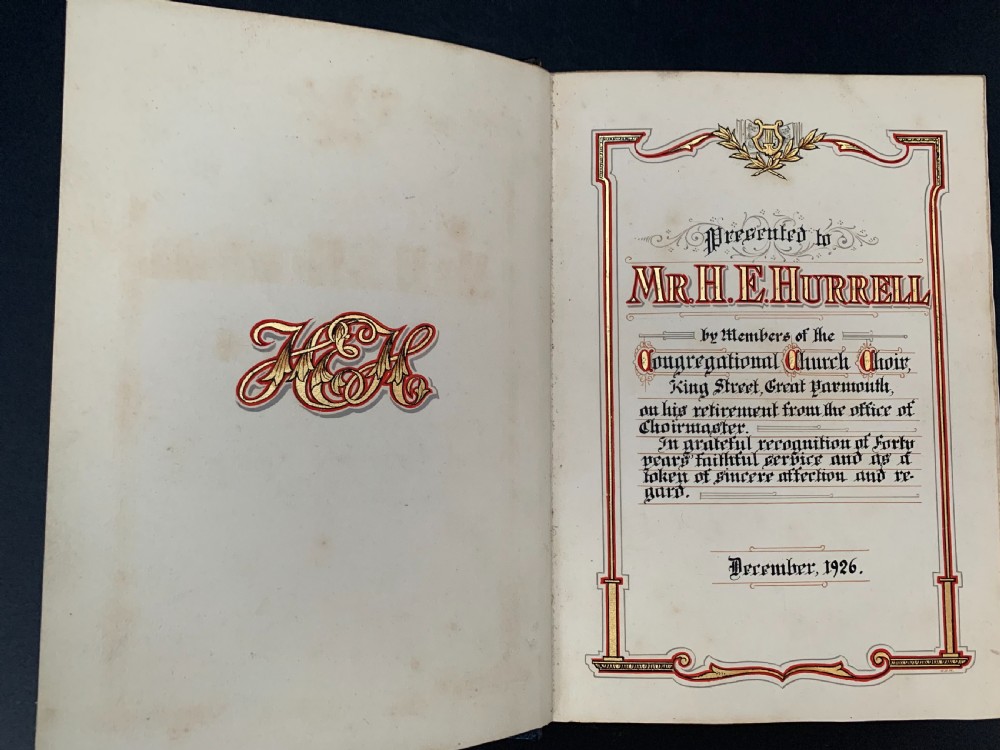 HEH
Presented to
MR. H. E. HURRELL
by Members of the
Congregational Church Choir,
King Street, Great Yarmouth,
on his retirement from the office of
Choirmaster.
In grateful recognition of Forty
years faithful service and as a
token of sincere affection and re-
gard.
December, 1926.